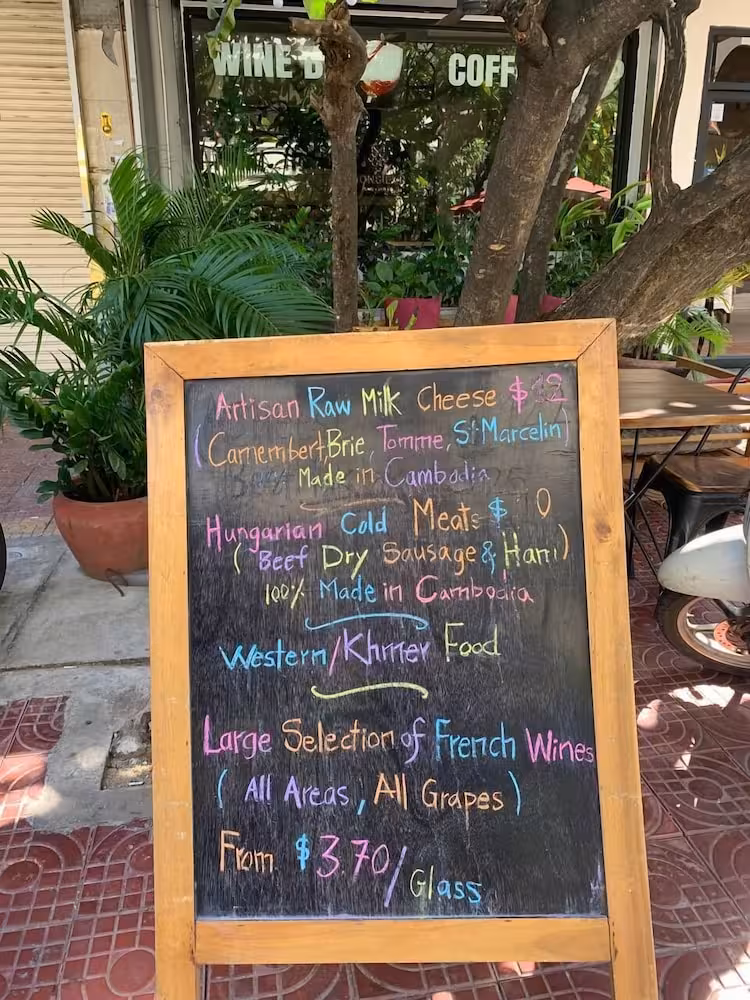 WINE B
COFF
Artisan Raw Milk Cheese $12
(Camembert, Brie, Tomme, St Marcelin)
Made in Cambodia
Hungarian Cold Meats $ 0
(Beef Dry Sausage & Ham)
100% Made in Cambodia
Western/Khmer Food
Large Selection of French Wines
(All Areas, All Grapes)
From $3.70/Glass